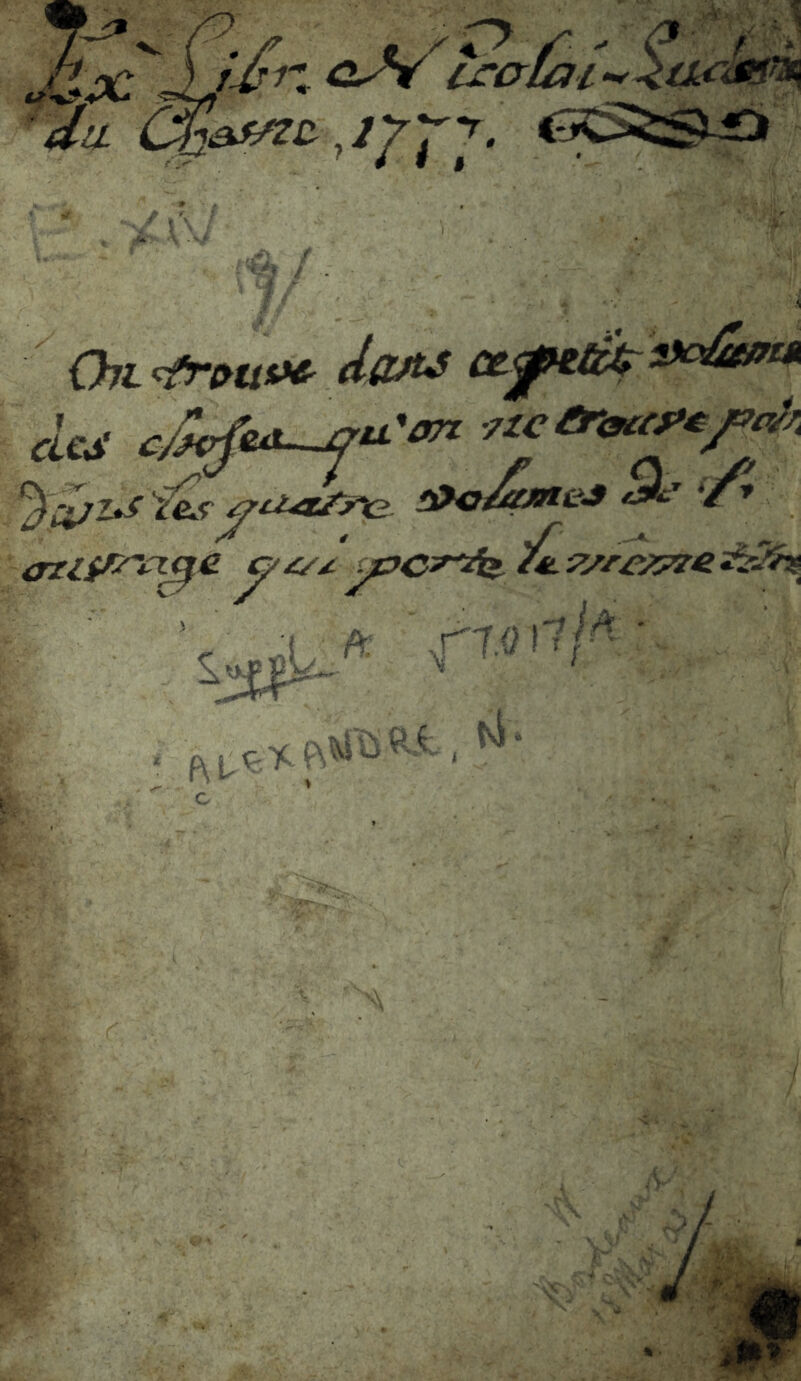 Ex Libr. Nicolai
du Chasne, 1777.
E. XIV
On trouve dans ce petit volume
des choses qu'on ne trouve pas
Dans les quatre volumes De l'
ouvrage qui porte le meme titre
Suppl.
ALEXANDRE, N.
Bordeaux